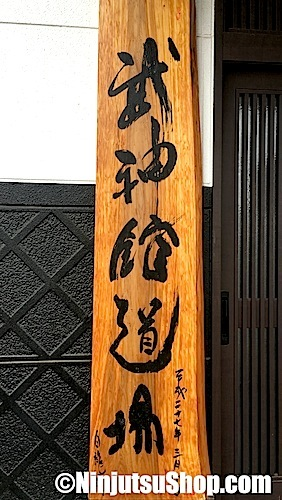 武神館道場
平成二十七年三月
©NinjutsuShop.com